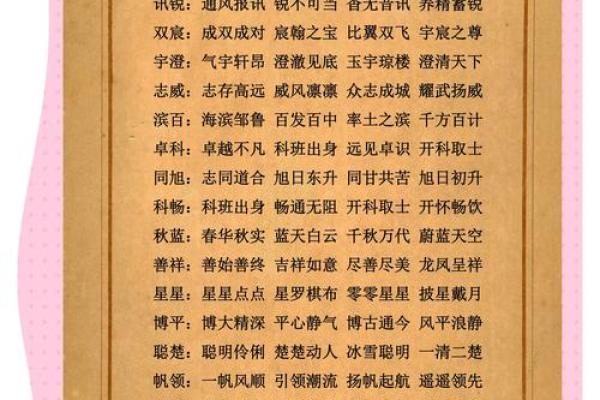 讯锐：通风报讯 锐不可当 杳无音讯 养精蓄锐
双宸：成双成对 宸翰之宝 比翼双飞 宇宸之尊
宇澄：气宇轩昂 澄澈见底 玉宇琼楼 澄清天下
志威：志存高远 威风凛凛 众志成城 耀武扬威
滨百：海滨邹鲁 百发百中 率土之滨 千方百计
卓科：卓越不凡 科班出身 远见卓识 开科取士
同旭：志同道合 旭日东升 同甘共苦 旭日初升
科畅：科班出身 畅通无阻 开科取士 开怀畅饮
秋蓝：春华秋实 蓝天白云 千秋万代 蔚蓝天空
善祥：善始善终 吉祥如意 尽善尽美 龙凤呈祥
星星：星星点点 星罗棋布 零零星星 披星戴月
博平：博大精深 平心静气 博古通今 风平浪静
聪楚：聪明伶俐 楚楚动人 冰雪聪明 一清二楚
帆领：一帆风顺 引领潮流 扬帆起航 遥遥领先